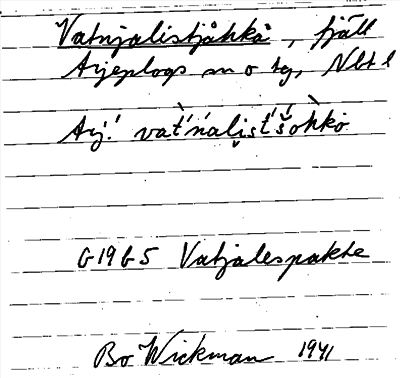 Vatnjalistjåkkå, fjäll
Arjeplogs sn o tg, Nbt l
Arj! vàt́ńališt́šòhkò
G19G5 Vatjalespakte
Bo Wickman 1941